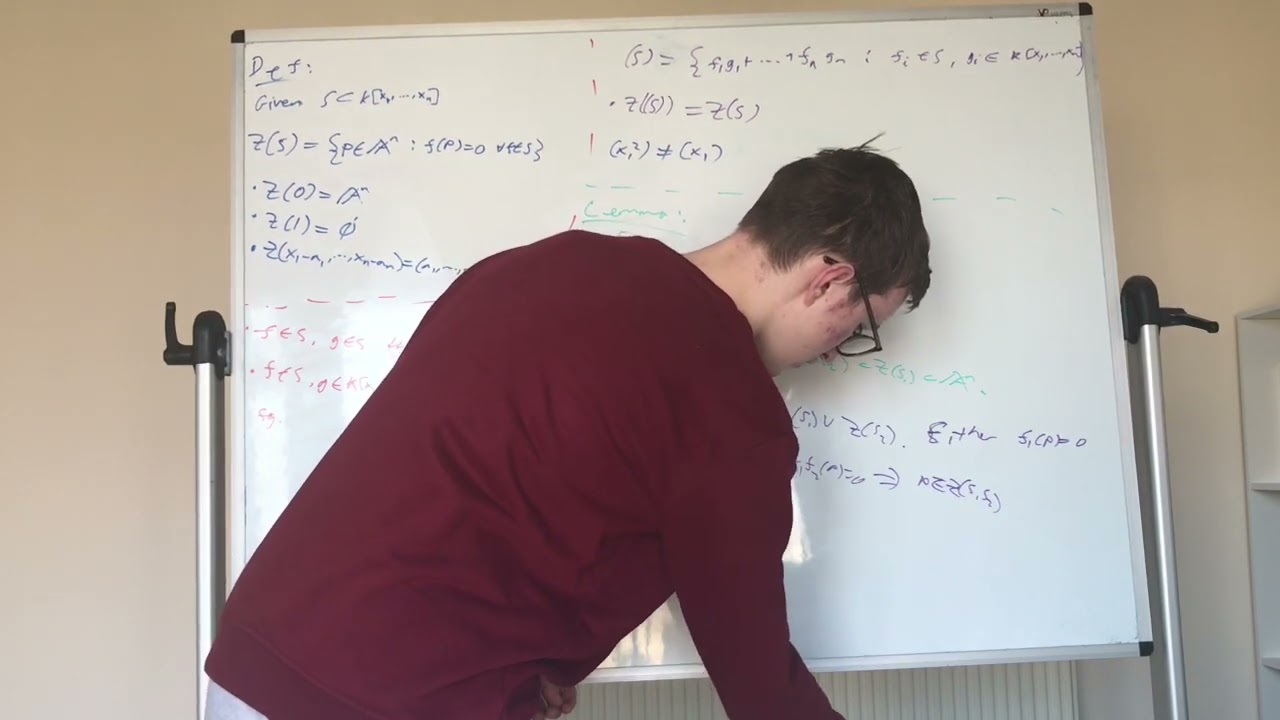 Def:
Given S ⊂ k[x₁,...,xₙ]
Z(S) = {p∈𝔸ⁿ : f(p)=0 ∀f∈S}
• Z(0) = 𝔸ⁿ
• Z(1) = ∅
• Z(x₁-a₁,...,xₙ-aₙ) = (a₁,...,
• f∈S, g∈S
• f∈S, g∈k[x
fg.
(S) = {f₁g₁+...+fₙgₙ : fᵢ∈S, gᵢ∈k[x₁,...,xₙ]}
• Z((S)) = Z(S)
(x₁²) ≠ (x₁)
Lemma:
₂) ⊂ Z(S₁) ⊂ 𝔸ⁿ.
(S₁) ∪ Z(S₂). Either f₁(p)=0
f₁f₂(p)=0 ⇒ p∈Z(S₁S₂)